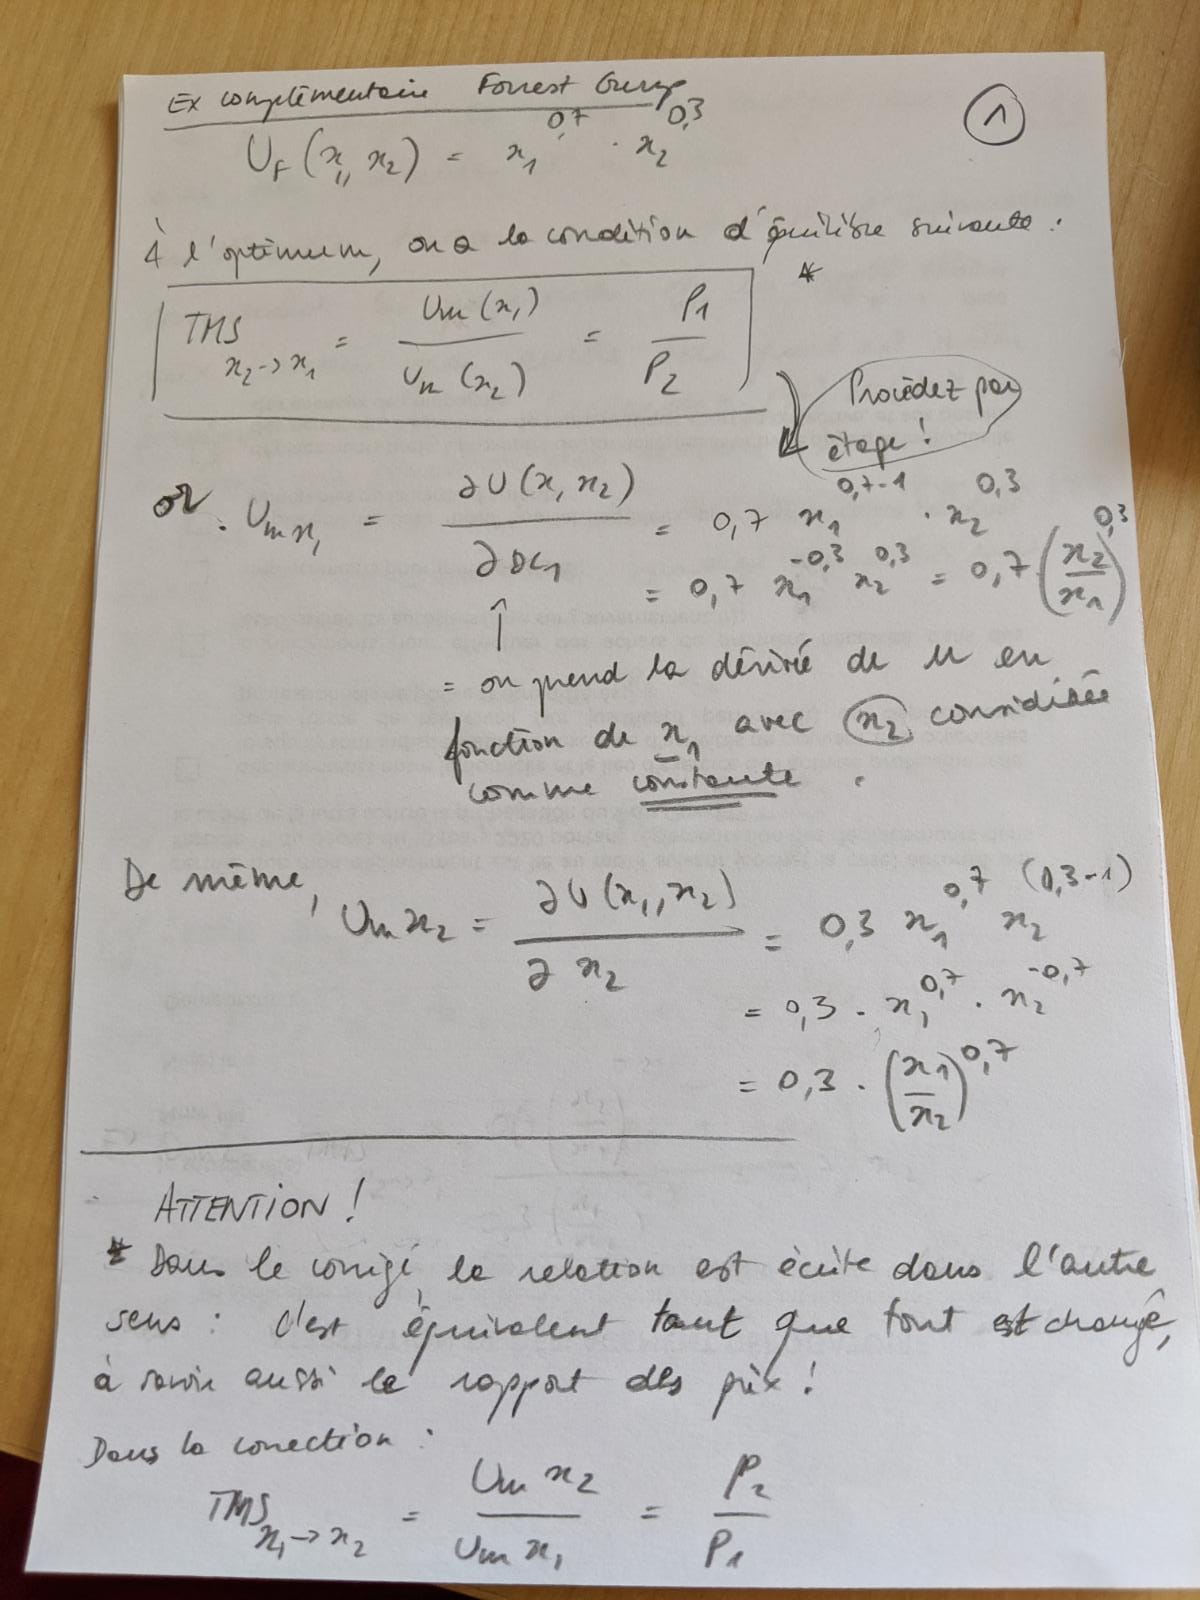 Ex complémentaire Forrest Gump
①
U_F (x_1, x_2) = x_1^{0,7} · x_2^{0,3}
À l'optimum, on a la condition d'équilibre suivante :
*
TMS_{x_2→x_1} = Um(x_1) / Um(x_2) = P_1 / P_2
Procédez par
étape !
or . Um x_1 = ∂U(x_1 x_2) / ∂x_1 = 0,7 x_1^{0,7-1} · x_2^{0,3}
= 0,7 x_1^{-0,3} x_2^{0,3} = 0,7 · (x_2/x_1)^{0,3}
↑
= on prend la dérivée de U en
fonction de x_1 avec x_2 considérée
comme constante .
De même,
Um x_2 = ∂U(x_1, x_2) / ∂x_2 = 0,3 x_1^{0,7} x_2^{(0,3-1)}
= 0,3 · x_1^{0,7} · x_2^{-0,7}
= 0,3 · (x_1/x_2)^{0,7}
ATTENTION !
* Dans le corrigé, la relation est écrite dans l'autre
sens : c'est équivalent tant que tout est changé,
à savoir aussi le rapport des prix !
Dans la correction :
TMS_{x_1→x_2} = Um x_2 / Um x_1 = P_2 / P_1